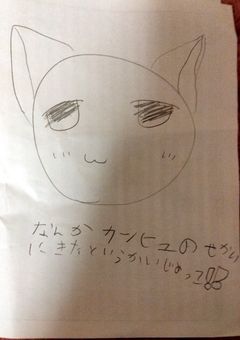 なんか カンヒュの せかい
にきたというかいじめって!!